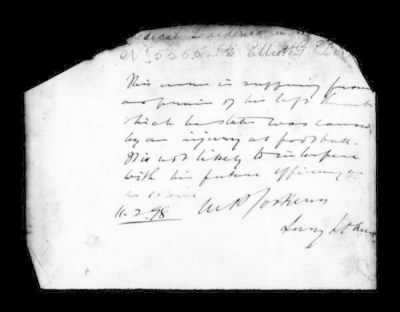 Medical
No 5666 Elliott
This man is suffering from
a sprain of his left thumb
which he states was caused
by an injury at football.
It is not likely to interfere
with his future efficiency
11.2.98
Surg